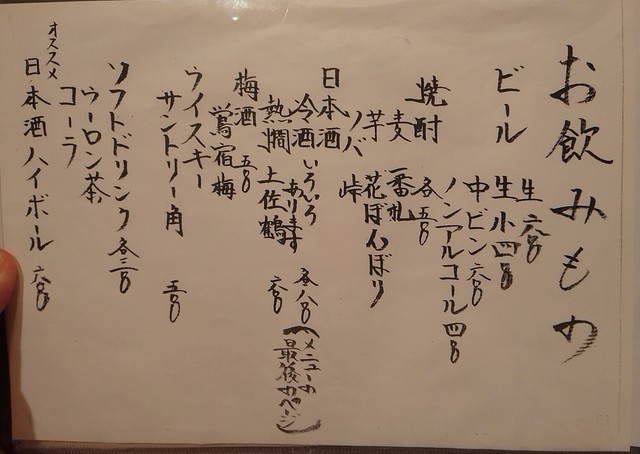 お飲みもの
ビール
生 六〇〇
生小 四〇〇
中ビン 六〇〇
ノンアルコール 四〇〇
焼酎 各五〇〇
麦 一番札
芋 花ぼんぼり
ソバ 峠
日本酒
冷酒 いろいろあります 各八〇〇 (メニューの最後のページ)
熱燗 土佐鶴 六〇〇
梅酒 五〇〇
鴬宿梅
ウイスキー
サントリー角 五〇〇
ソフトドリンク 各三〇〇
ウーロン茶
コーラ
オススメ
日本酒ハイボール 六〇〇